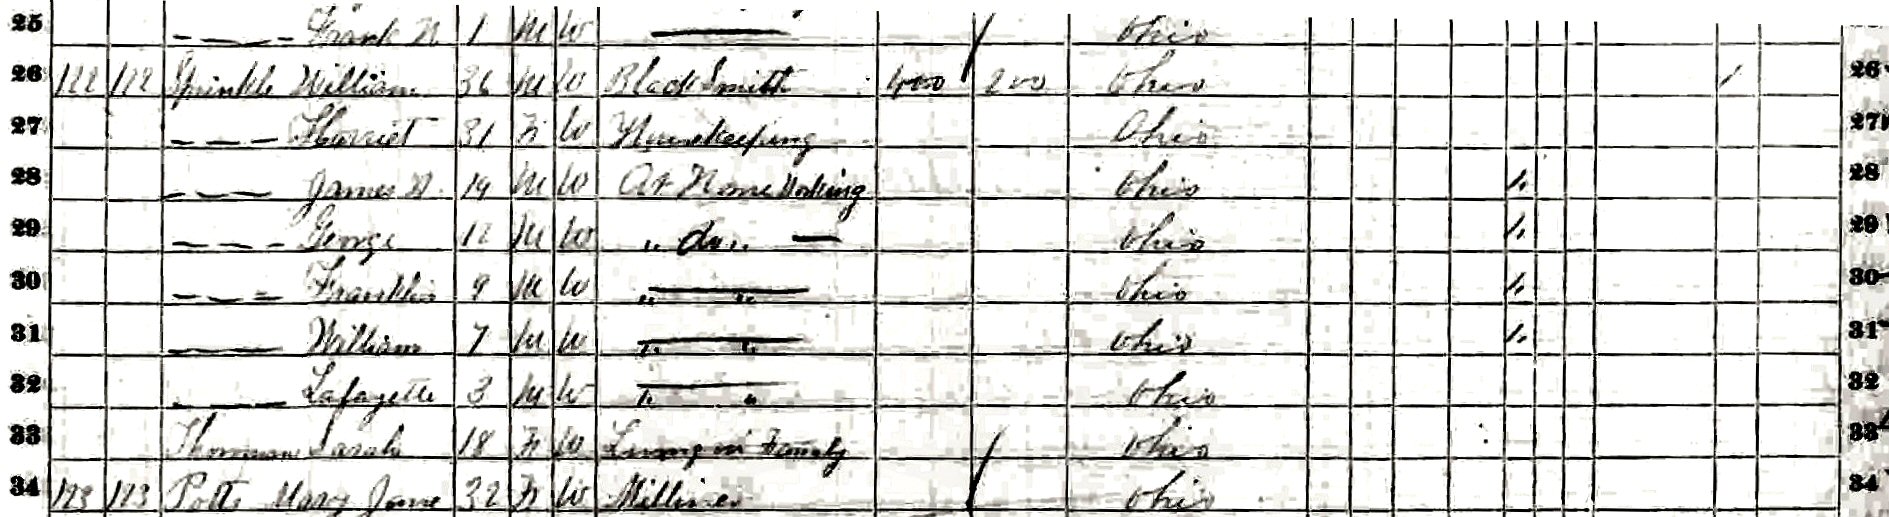 25 — — — Frank H 1 M W — Ohio
26 122 122 Sprinkle William 36 M W BlackSmith 400 200 Ohio / 26
27 — — — Harriet 31 F W Housekeeping Ohio 27
28 — — — James H. 14 M W At Home Working Ohio /. 28
29 — — — George 12 M W " do " — Ohio /. 29
30 — — — Franklin 9 M W " " Ohio /. 30
31 — William 7 M W " " Ohio /. 31
32 — Lafayette 3 M W " " Ohio 32
33 Sarah 18 F W Living in Family Ohio 33
34 123 123 Potts Mary Jane 32 F W Milliner Ohio 34